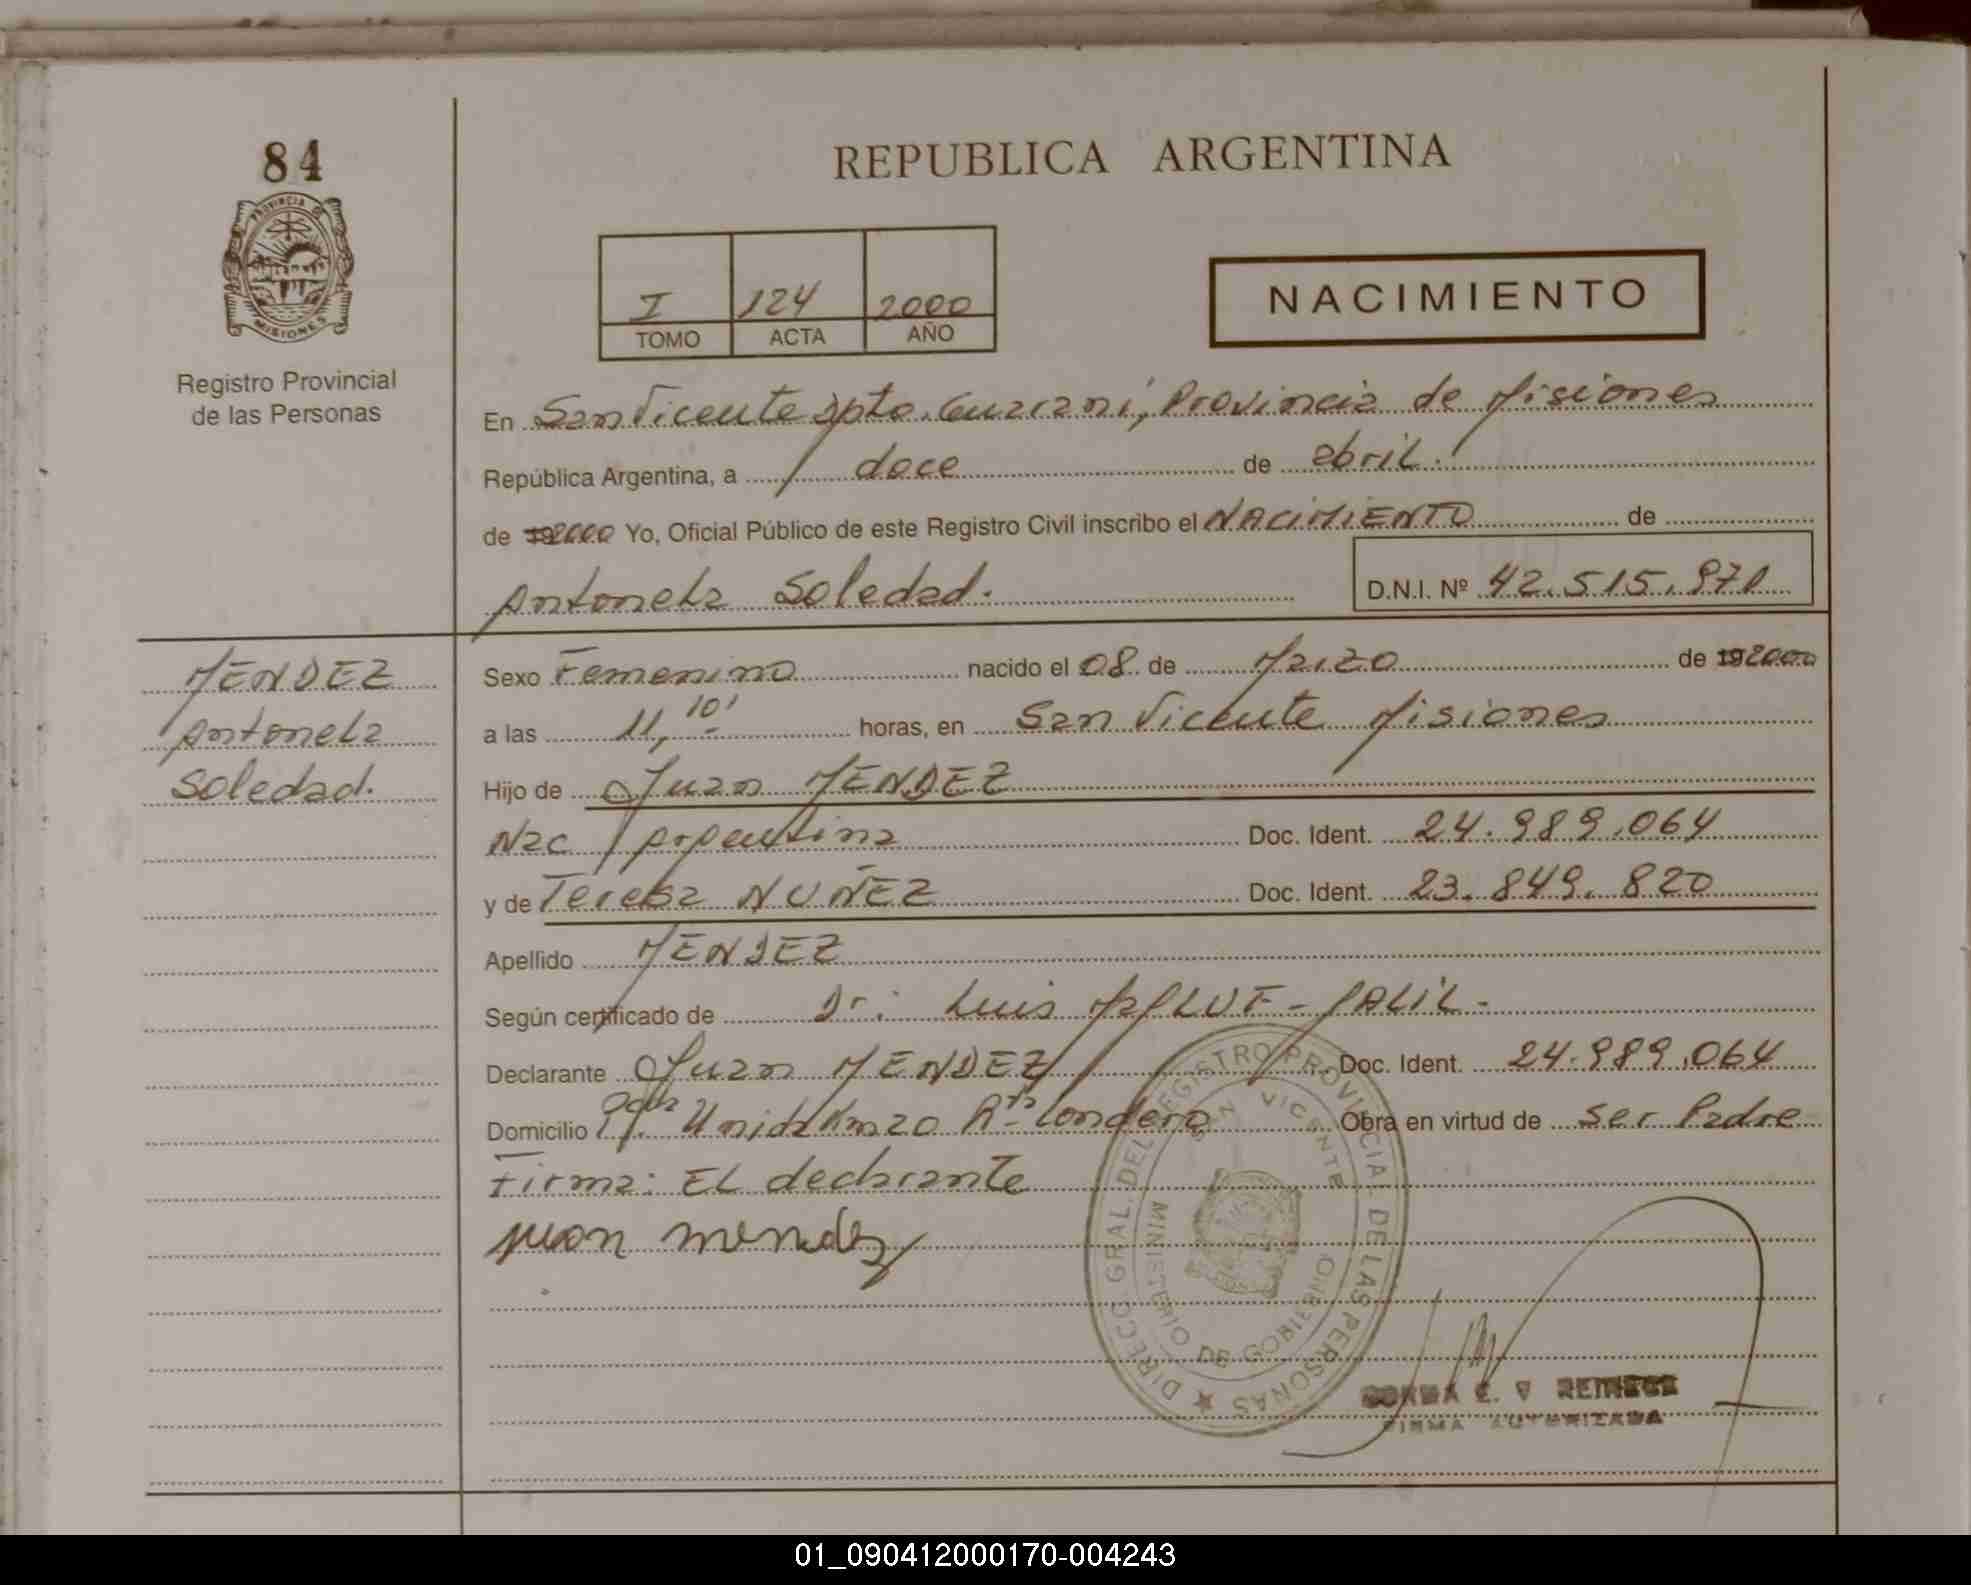 84
REPUBLICA ARGENTINA
PROVINCIA DE
MISIONES
Registro Provincial
de las Personas
I 124 2000
TOMO ACTA AÑO
NACIMIENTO
En San Vicente Dpto. Guaraní, Provincia de Misiones
República Argentina, a doce de abril.
de 192000 Yo, Oficial Público de este Registro Civil inscribo el NACIMIENTO de
Antonela Soledad. D.N.I. Nº 42.515.970
MENDEZ
Antonela
Soledad.
Sexo Femenino nacido el 08 de Marzo de 192000
a las 11,10' horas, en San Vicente Misiones
Hijo de Juan MENDEZ
Nac Argentina Doc. Ident. 24.989.064
y de Teresa NUÑEZ Doc. Ident. 23.849.820
Apellido MENDEZ
Según certificado de Dr: Luis
Declarante Juan MENDEZ Doc. Ident. 24.989.064
Domicilio Obra en virtud de Ser Padre
Firma: EL declarante
juan mendez
DIRECC. GRAL. DEL REGISTRO PROVINCIAL DE LAS PERSONAS
SAN VICENTE
MINISTERIO DE GOBIERNO
FIRMA AUTORIZADA
01_090412000170-004243